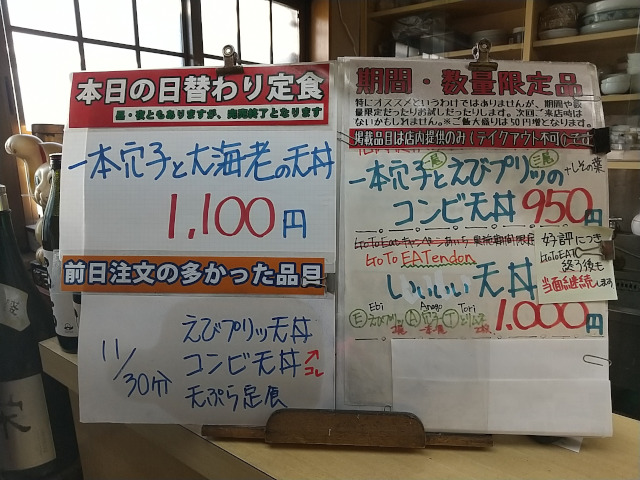 本日の日替わり定食
昼・夜ともありますが、肉肉終了となります
一本穴子と大海老の天丼
1,100円
前日注文の多かった品目
11/30分
えびプリッ天丼
コンビ天丼
コレ
天ぷら定食
期間・数量限定品
特にオススメというわけではありませんが、期間や数
量限定だったりお試しだったりします。次回ご来店時は
ないかもしれません。※ご飯大盛りは50円増となります。
掲載品目は店内提供のみ(テイクアウト不可)です
一本穴子とえびプリッの
二尾
+しその葉
コンビ天丼 950円
GoTo EATendon
いいいい天丼
1,000円
Ebi Anago Tori
Ⓔえびプリッ Ⓐ穴子 Ⓣとり
一本
好評につき
GoToEATC
終了後も
当面継続します